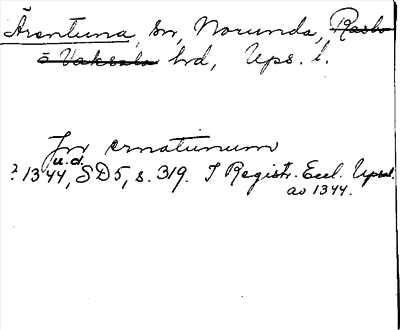 Ärentuna, sn, Norunda, Rasbo
o Vaksala hd, Ups. l.
Jn ernatunum
u.d.
? 1344, SD 5, s. 319. I Registr. Eccl. Upsal.
av 1344.